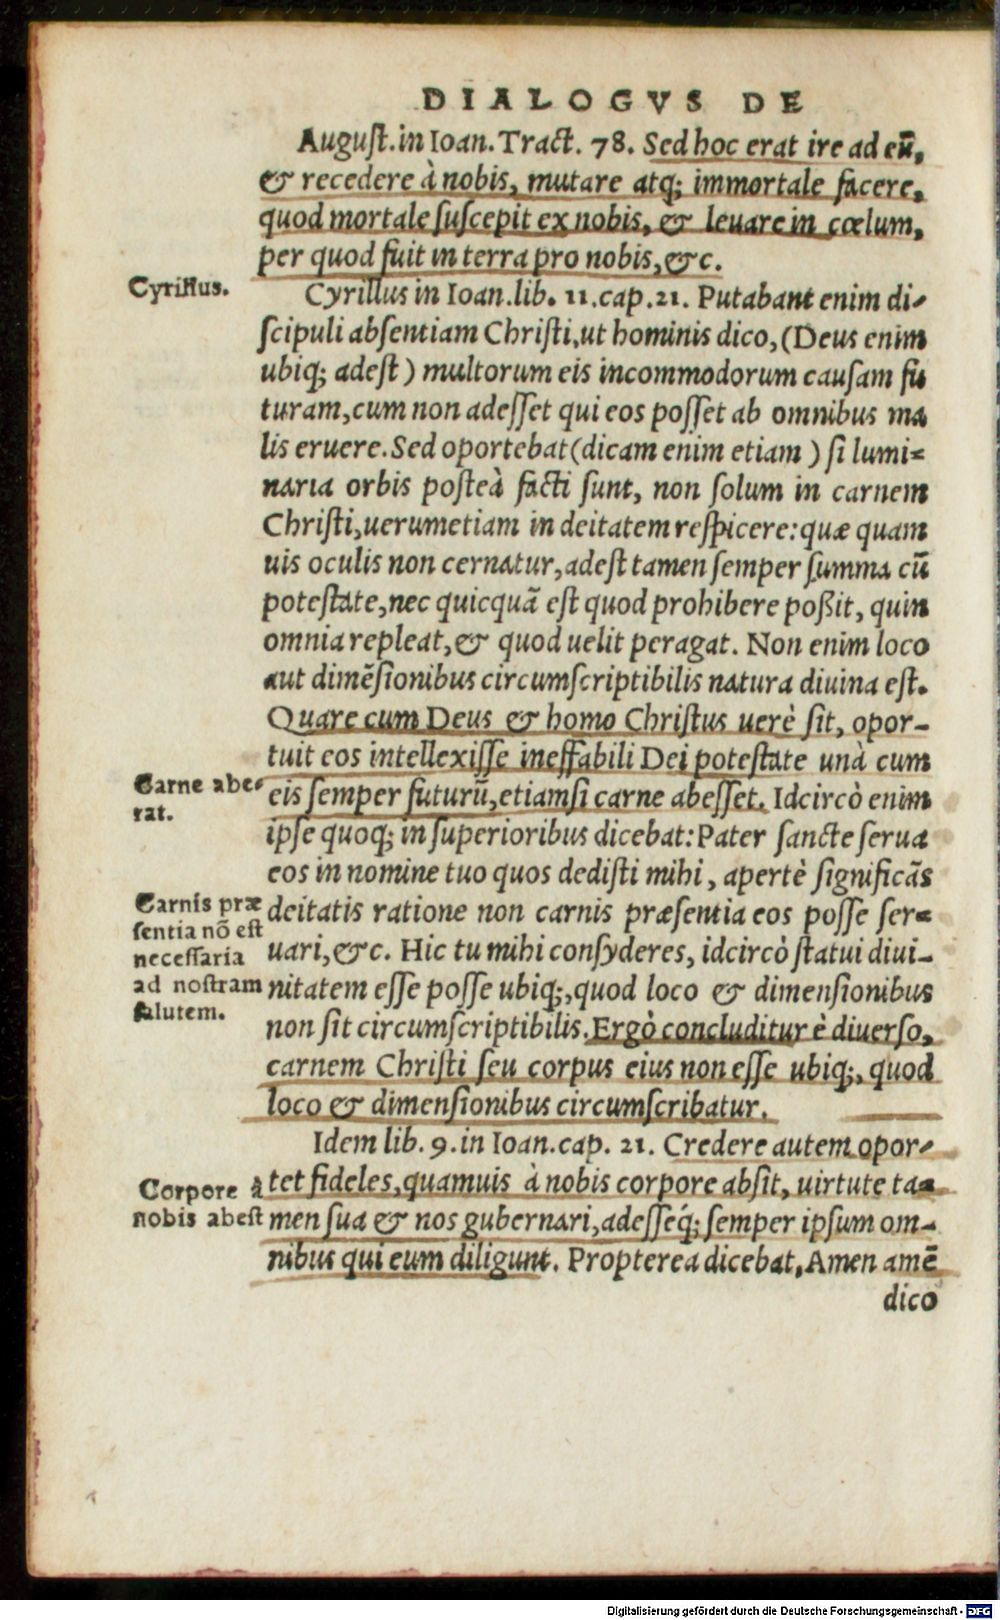 DIALOGVS DE
August. in Ioan. Tract. 78. Sed hoc erat ire ad eū,
& recedere à nobis, mutare atq; immortale facere,
quod mortale suscepit ex nobis, & leuare in cœlum,
per quod fuit in terra pro nobis, &c.
Cyrillus.
Cyrillus in Ioan. lib. 11. cap. 21. Putabant enim di-
scipuli absentiam Christi, ut hominis dico, (Deus enim
ubiq; adest) multorum eis incommodorum causam fu
turam, cum non adesset qui eos posset ab omnibus ma
lis eruere. Sed oportebat (dicam enim etiam) si lumi=
naria orbis posteà facti sunt, non solum in carnem
Christi, uerumetiam in deitatem respicere: quæ quam
uis oculis non cernatur, adest tamen semper summa cū
potestate, nec quicquā est quod prohibere poßit, quin
omnia repleat, & quod uelit peragat. Non enim loco
aut dimēsionibus circumscriptibilis natura diuina est.
Quare cum Deus & homo Christus uerè sit, opor-
tuit eos intellexisse ineffabili Dei potestate unà cum
Carne abe-
rat.
eis semper futurū, etiamsi carne abesset. Idcircò enim
ipse quoq; in superioribus dicebat: Pater sancte serua
eos in nomine tuo quos dedisti mihi, apertè significās
Carnis præ
sentia nō est
necessaria
ad nostram
salutem.
deitatis ratione non carnis præsentia eos posse ser=
uari, &c. Hic tu mihi consyderes, idcircò statui diui-
nitatem esse posse ubiq;, quod loco & dimensionibus
non sit circumscriptibilis. Ergò concluditur è diuerso,
carnem Christi seu corpus eius non esse ubiq;, quod
loco & dimensionibus circumscribatur.
Idem lib. 9. in Ioan. cap. 21. Credere autem opor-
Corpore à
nobis abest
tet fideles, quamuis à nobis corpore absit, uirtute ta=
men sua & nos gubernari, adesseq́; semper ipsum om-
nibus qui eum diligunt. Propterea dicebat, Amen amē
dico
Digitalisierung gefördert durch die Deutsche Forschungsgemeinschaft - DFG